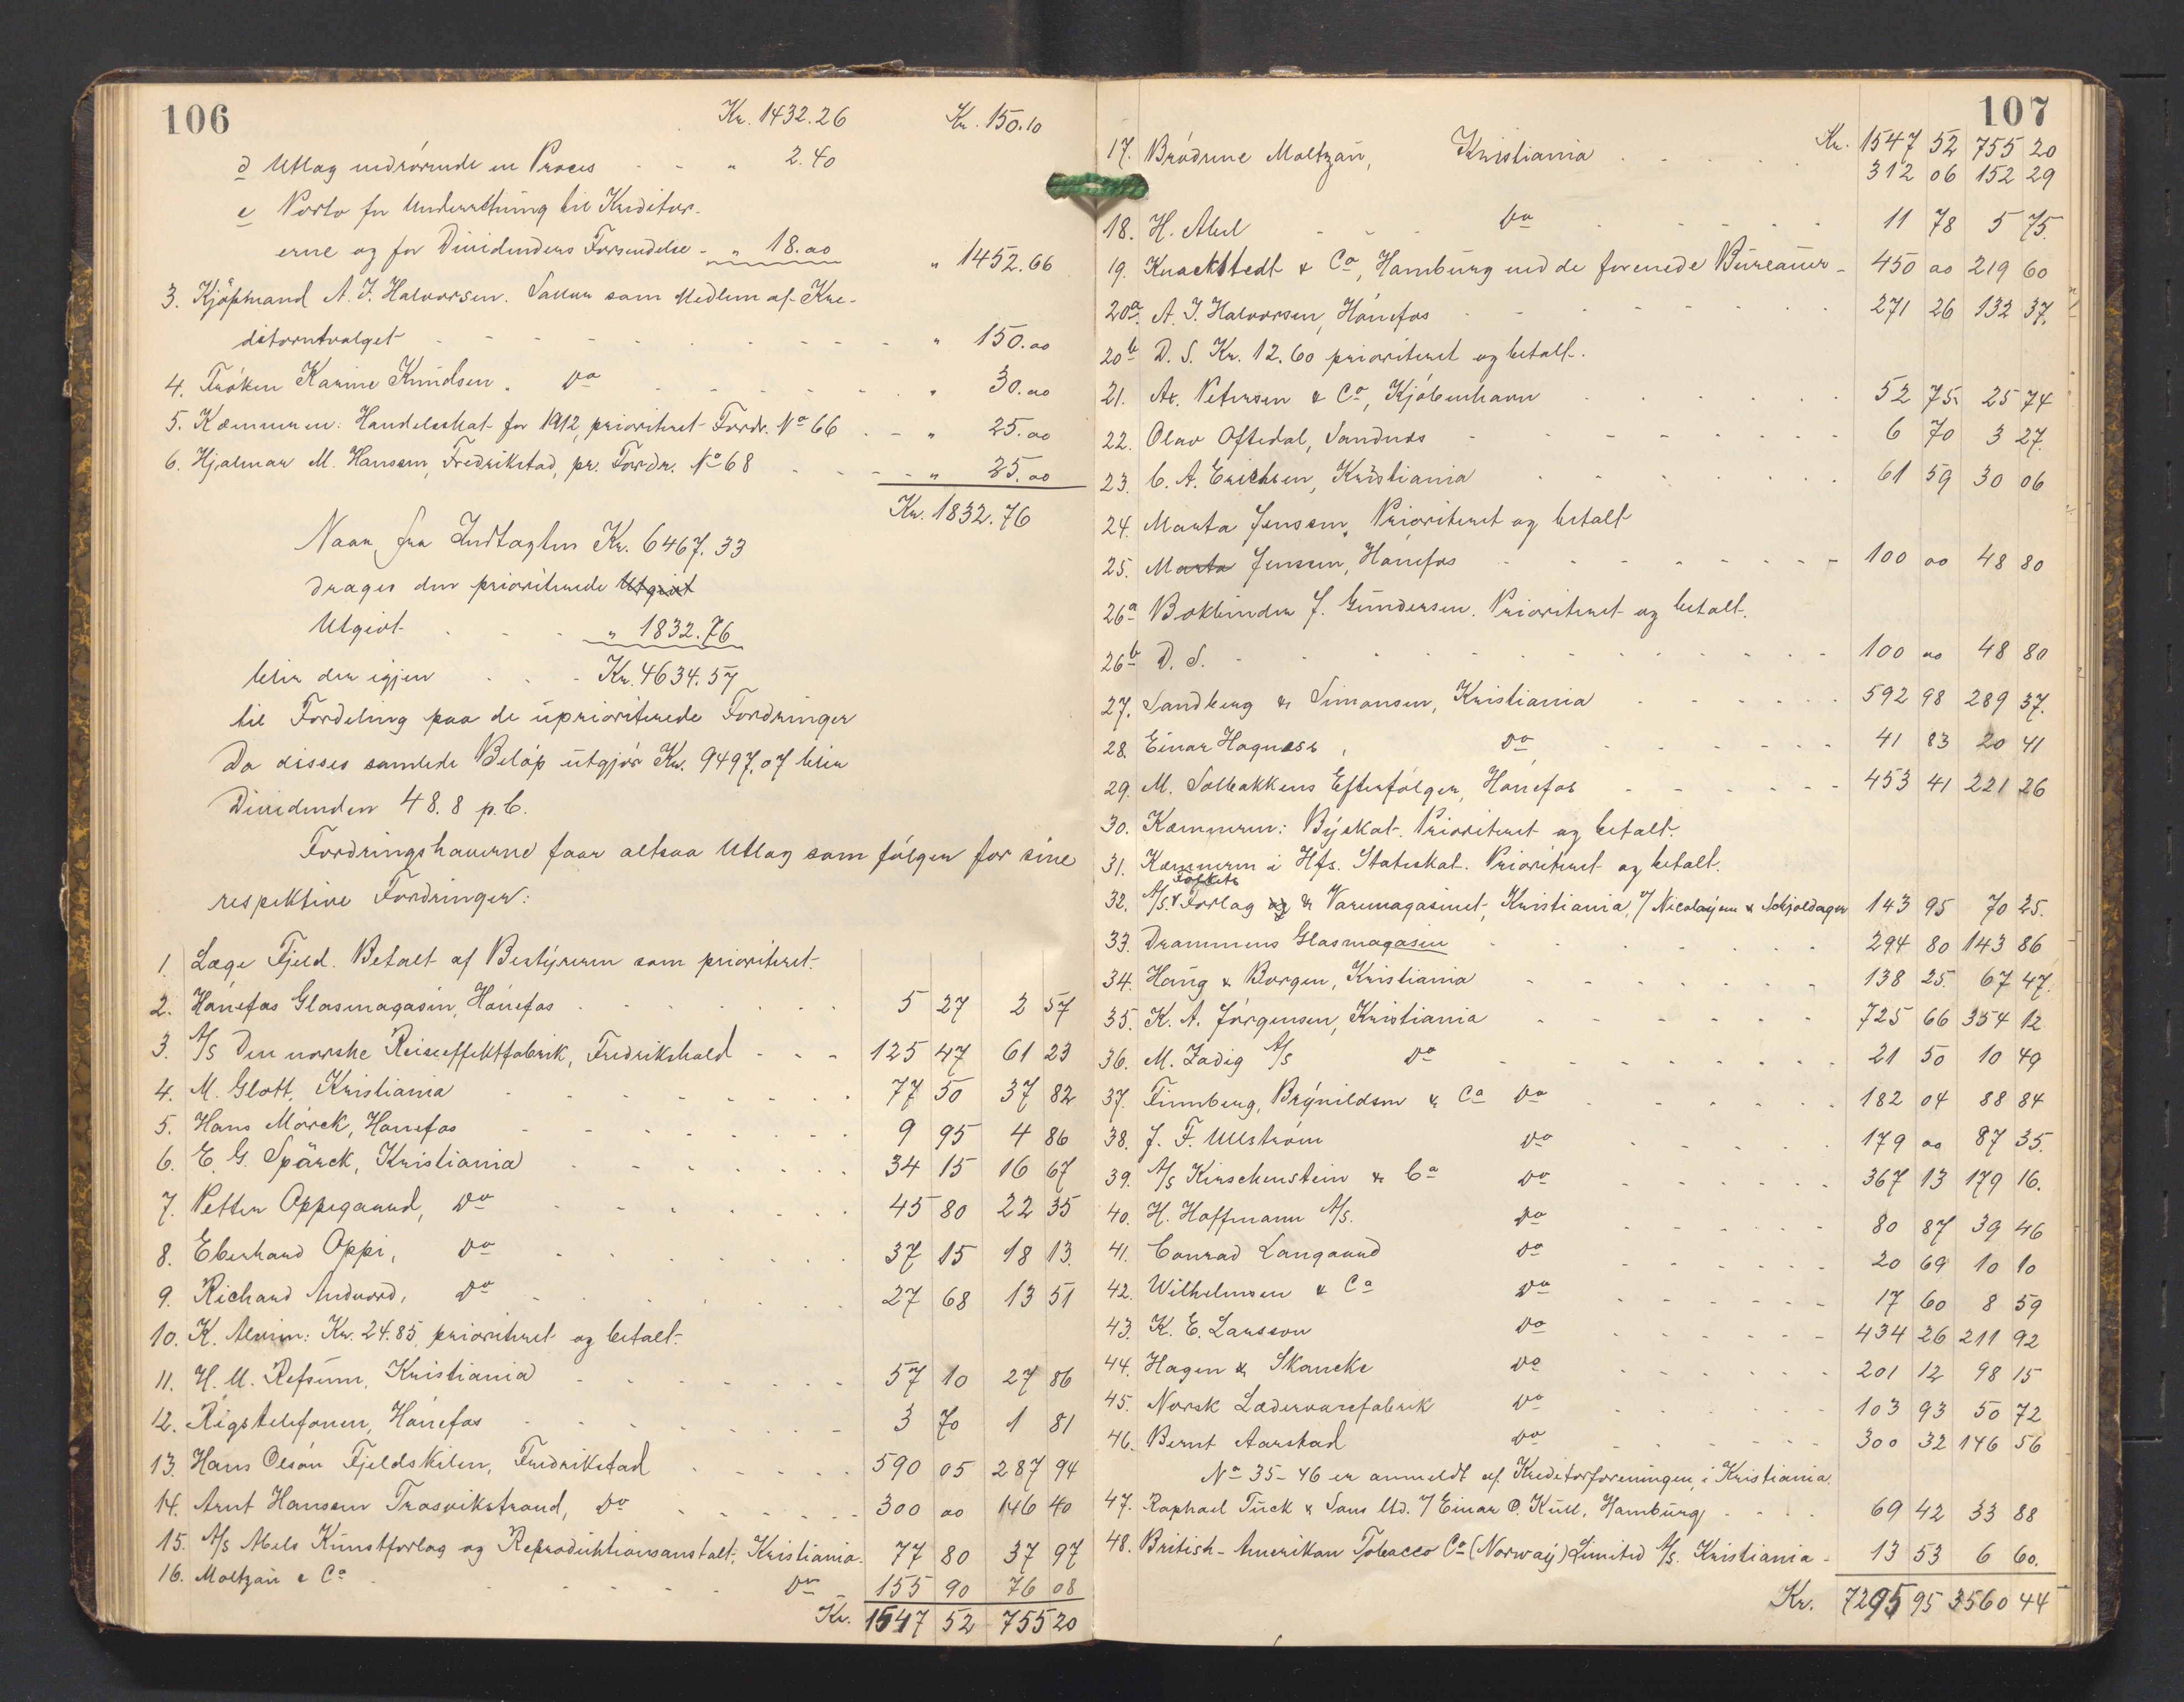 106
Kr. 1432.26 Kr. 150.10
d Utlag vedrørende en Proces - - " 2.40
e Porto for Underretning til Kreditor-
erne og for Dividendens Forsendelse - " 18.00 " 1452.66
3. Kjøpmand A. J. Halvorsen. Salær som Medlem af Kre-
ditorutvalget " 150.00
4. Frøken Karine Knudsen. Do " 30.00
5. Kæmneren: Handelsskat for 1912, prioritert Fordr. No 66 - - " 25.00
6. Hjalmar M. Hansen, Fredrikstad, pr. Fordr. No 68 - - " 25.00
Kr. 1832.76
Naar fra Indtægten Kr. 6467.33
drages den prioriterede Utgivt
Utgivt " 1832.76
blir der igjen Kr. 4634.57
til Fordeling paa de uprioriterede Fordringer
Da disses samlede Beløp utgjør Kr. 9497.07 blir
Dividenden 48.8 p.C.
Fordringshaverne faar altsaa Utlag som følger for sine
respektive Fordringer:
1. Læge Fjeld. Betalt af Bestyreren som prioritert.
2. Hønefos Glasmagasin, Hønefos 5 27 2 57
3. A/S Den norske Reiseeffektfabrik, Fredrikshald - - - 125 47 61 23
4. M. Glott, Kristiania 77 50 37 82
5. Hans Mørck, Hønefos 9 95 4 86
6. E. G. Spärck, Kristiania 34 15 16 67
7. Petter Oppegaard, Do 45 80 22 35
8. Eberhard Oppi, Do 37 15 18 13.
9. Richard Andvord, Do 27 68 13 51
10. K. Alvim: Kr. 24.85, prioritert og betalt.
11. H. M. Refsum, Kristiania 57 10 27 86
12. Rigstelefonen, Hønefos 3 70 1 81
13. Hans Olsøn Fjeldskilen, Fredrikstad 590 05 287 94
14. Arnt Hansen Trosvikstrand, Do 300 00 146 40
15. A/S Abels Kunstforlag og Reproduktionsanstalt, Kristiania - 77 80 37 97
16. Moltzau & Co Do 155 90 76 08
Kr. 1547 52 755 20
107
Kr. 1547 52 755 20
17. Brødrene Moltzau, Kristiania 312 06 152 29
18. H. Abel Do 11 78 5 75.
19. Knackstedt & Co, Hamburg ved de forenede Bureauer - 450 00 219 60
20a. A. J. Halvorsen, Hønefos 271 26 132 37.
20b D. S. Kr. 12.60 prioritert og betalt.
21. Ax. Petersen & Co, Kjøbenhavn 52 75 25 74
22. Olav Oftedal, Sandnes 6 70 3 27.
23. C. A. Erichsen, Kristiania 61 59 30 06
24. Marta Jensen, Prioritert og betalt
25. Marta Jensen, Hønefos 100 00 48 80
26a Bokbinder J. Gundersen. Prioritert og betalt.
26b D. S. 100 00 48 80
27. Sandberg & Simonsen, Kristiania 592 98 289 37.
28. Einar Hagness, Do 41 83 20 41
29. M. Solbakkens Efterfølger, Hønefos 453 41 221 26
30. Kæmneren: Byskat. Prioritert og betalt.
31. Kæmneren i Hfs. Statsskat. Prioritert og betalt.
Folkets
32. A/S. Forlag og & Varemagasinet, Kristiania, v/ Nicolaysen & Schjoldager 143 95 70 25.
33. Drammens Glasmagasin 294 80 143 86
34. Haug & Borgen, Kristiania 138 25. 67 47.
35. K. A. Jørgensen, Kristiania 725 66 354 12
36. M. Zadig A/S Do 21 50 10 49
37. Finnberg, Brynildsen & Co Do 182 04 88 84
38. J. F. Ullström Do 179 00 87 35.
39. A/S Kirschenstein & Co Do 367 13 179 16.
40. H. Hoffmann A/S. Do 80 87 39 46
41. Conrad Langaard Do 20 69 10 10
42. Wilhelmsen & Co Do 17 60 8 59
43. K. E. Larsson Do 434 26 211 92
44. Hagen & Skancke Do 201 12 98 15
45. Norsk Lædervarefabrik Do 103 93 50 72
46. Bernt Aarstad Do 300 32 146 56
No 35-46 er anmeldt af Kreditorforeningen i Kristiania.
47. Raphael Tuck & Sons ltd. v/ Einar O. Kull, Hamburg 69 42 33 88
48. British-Amerikan Tobacco Co (Norway) Limited A/S. Kristiania - 13 53 6 60.
Kr. 7295 95 3560 44